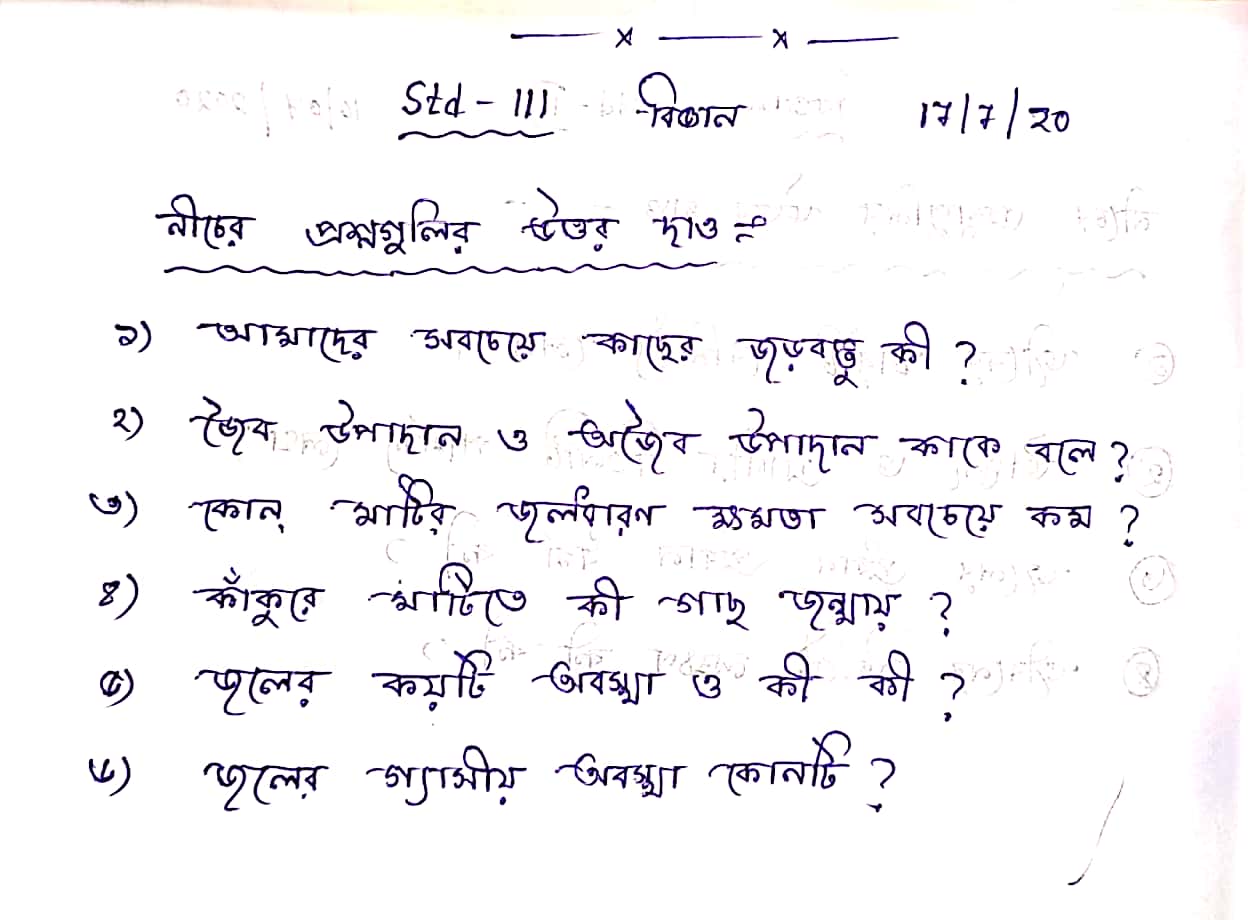 — x — x —
Std - III বিজ্ঞান 17/7/20
নীচের প্রশ্নগুলির উত্তর দাও ঃ
১) আমাদের সবচেয়ে কাছের জড়বস্তু কী ?
২) জৈব উপাদান ও অজৈব উপাদান কাকে বলে ?
৩) কোন্ মাটির জলধারণ ক্ষমতা সবচেয়ে কম ?
৪) কাঁকুরে মাটিতে কী গাছ জন্মায় ?
৫) জলের কয়টি অবস্থা ও কী কী ?
৬) জলের গ্যাসীয় অবস্থা কোনটি ?